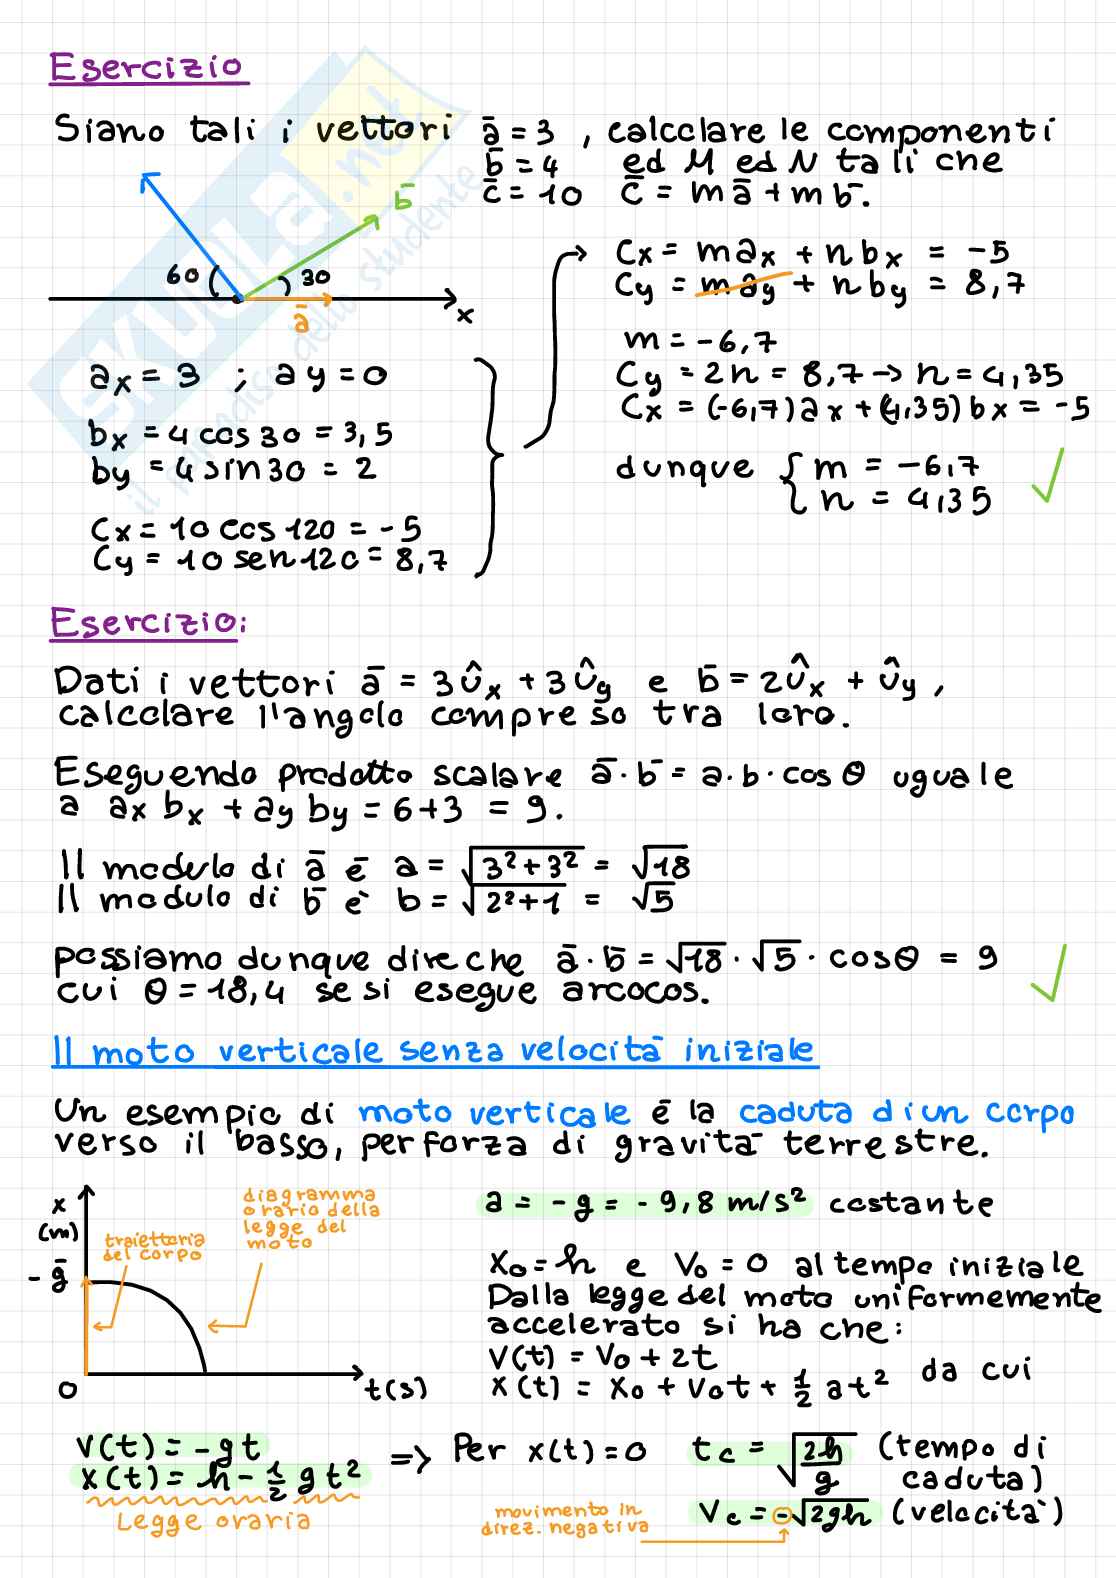 Esercizio
Siano tali i vettori ā = 3 , calcolare le componenti
b̄ = 4 ed M ed N tali che
c̄ = 10 c̄ = m ā + m b̄.
b̄
60
30
ā
x
ax = 3 ; ay = 0
bx = 4 cos 30 = 3,5
by = 4 sin 30 = 2
Cx = 10 cos 120 = -5
Cy = 10 sen 120 = 8,7
Cx = max + nbx = -5
Cy = may + nby = 8,7
m = -6,7
Cy = 2n = 8,7 → n = 4,35
Cx = (-6,7)ax + (4,35)bx = -5
dunque { m = -6,7
n = 4,35
Esercizio:
Dati i vettori ā = 3ûx + 3ûy e b̄ = 2ûx + ûy ,
calcolare l'angolo compreso tra loro.
Eseguendo prodotto scalare ā · b̄ = a · b · cos θ uguale
a ax bx + ay by = 6 + 3 = 9.
Il modulo di ā è a = √(3² + 3²) = √18
Il modulo di b̄ è b = √(2² + 1) = √5
possiamo dunque dire che ā · b̄ = √18 · √5 · cos θ = 9
cui θ = 18,4 se si esegue arcocos.
Il moto verticale senza velocità iniziale
Un esempio di moto verticale è la caduta di un corpo
verso il basso, per forza di gravità terrestre.
x
(m)
- ḡ
0
t(s)
traiettoria
del corpo
diagramma
orario della
legge del
moto
a = -g = -9,8 m/s² costante
X₀ = h e V₀ = 0 al tempo iniziale
Dalla legge del moto uniformemente
accelerato si ha che:
V(t) = V₀ + at
X(t) = X₀ + V₀t + ½ at² da cui
V(t) = -gt
X(t) = h - ½ gt²
Legge oraria
=> Per x(t) = 0 tc = √(2h/g) (tempo di
caduta)
Vc = -√(2gh) (velocità)
movimento in
direz. negativa
SKUOLA.net
il paradiso dello studente